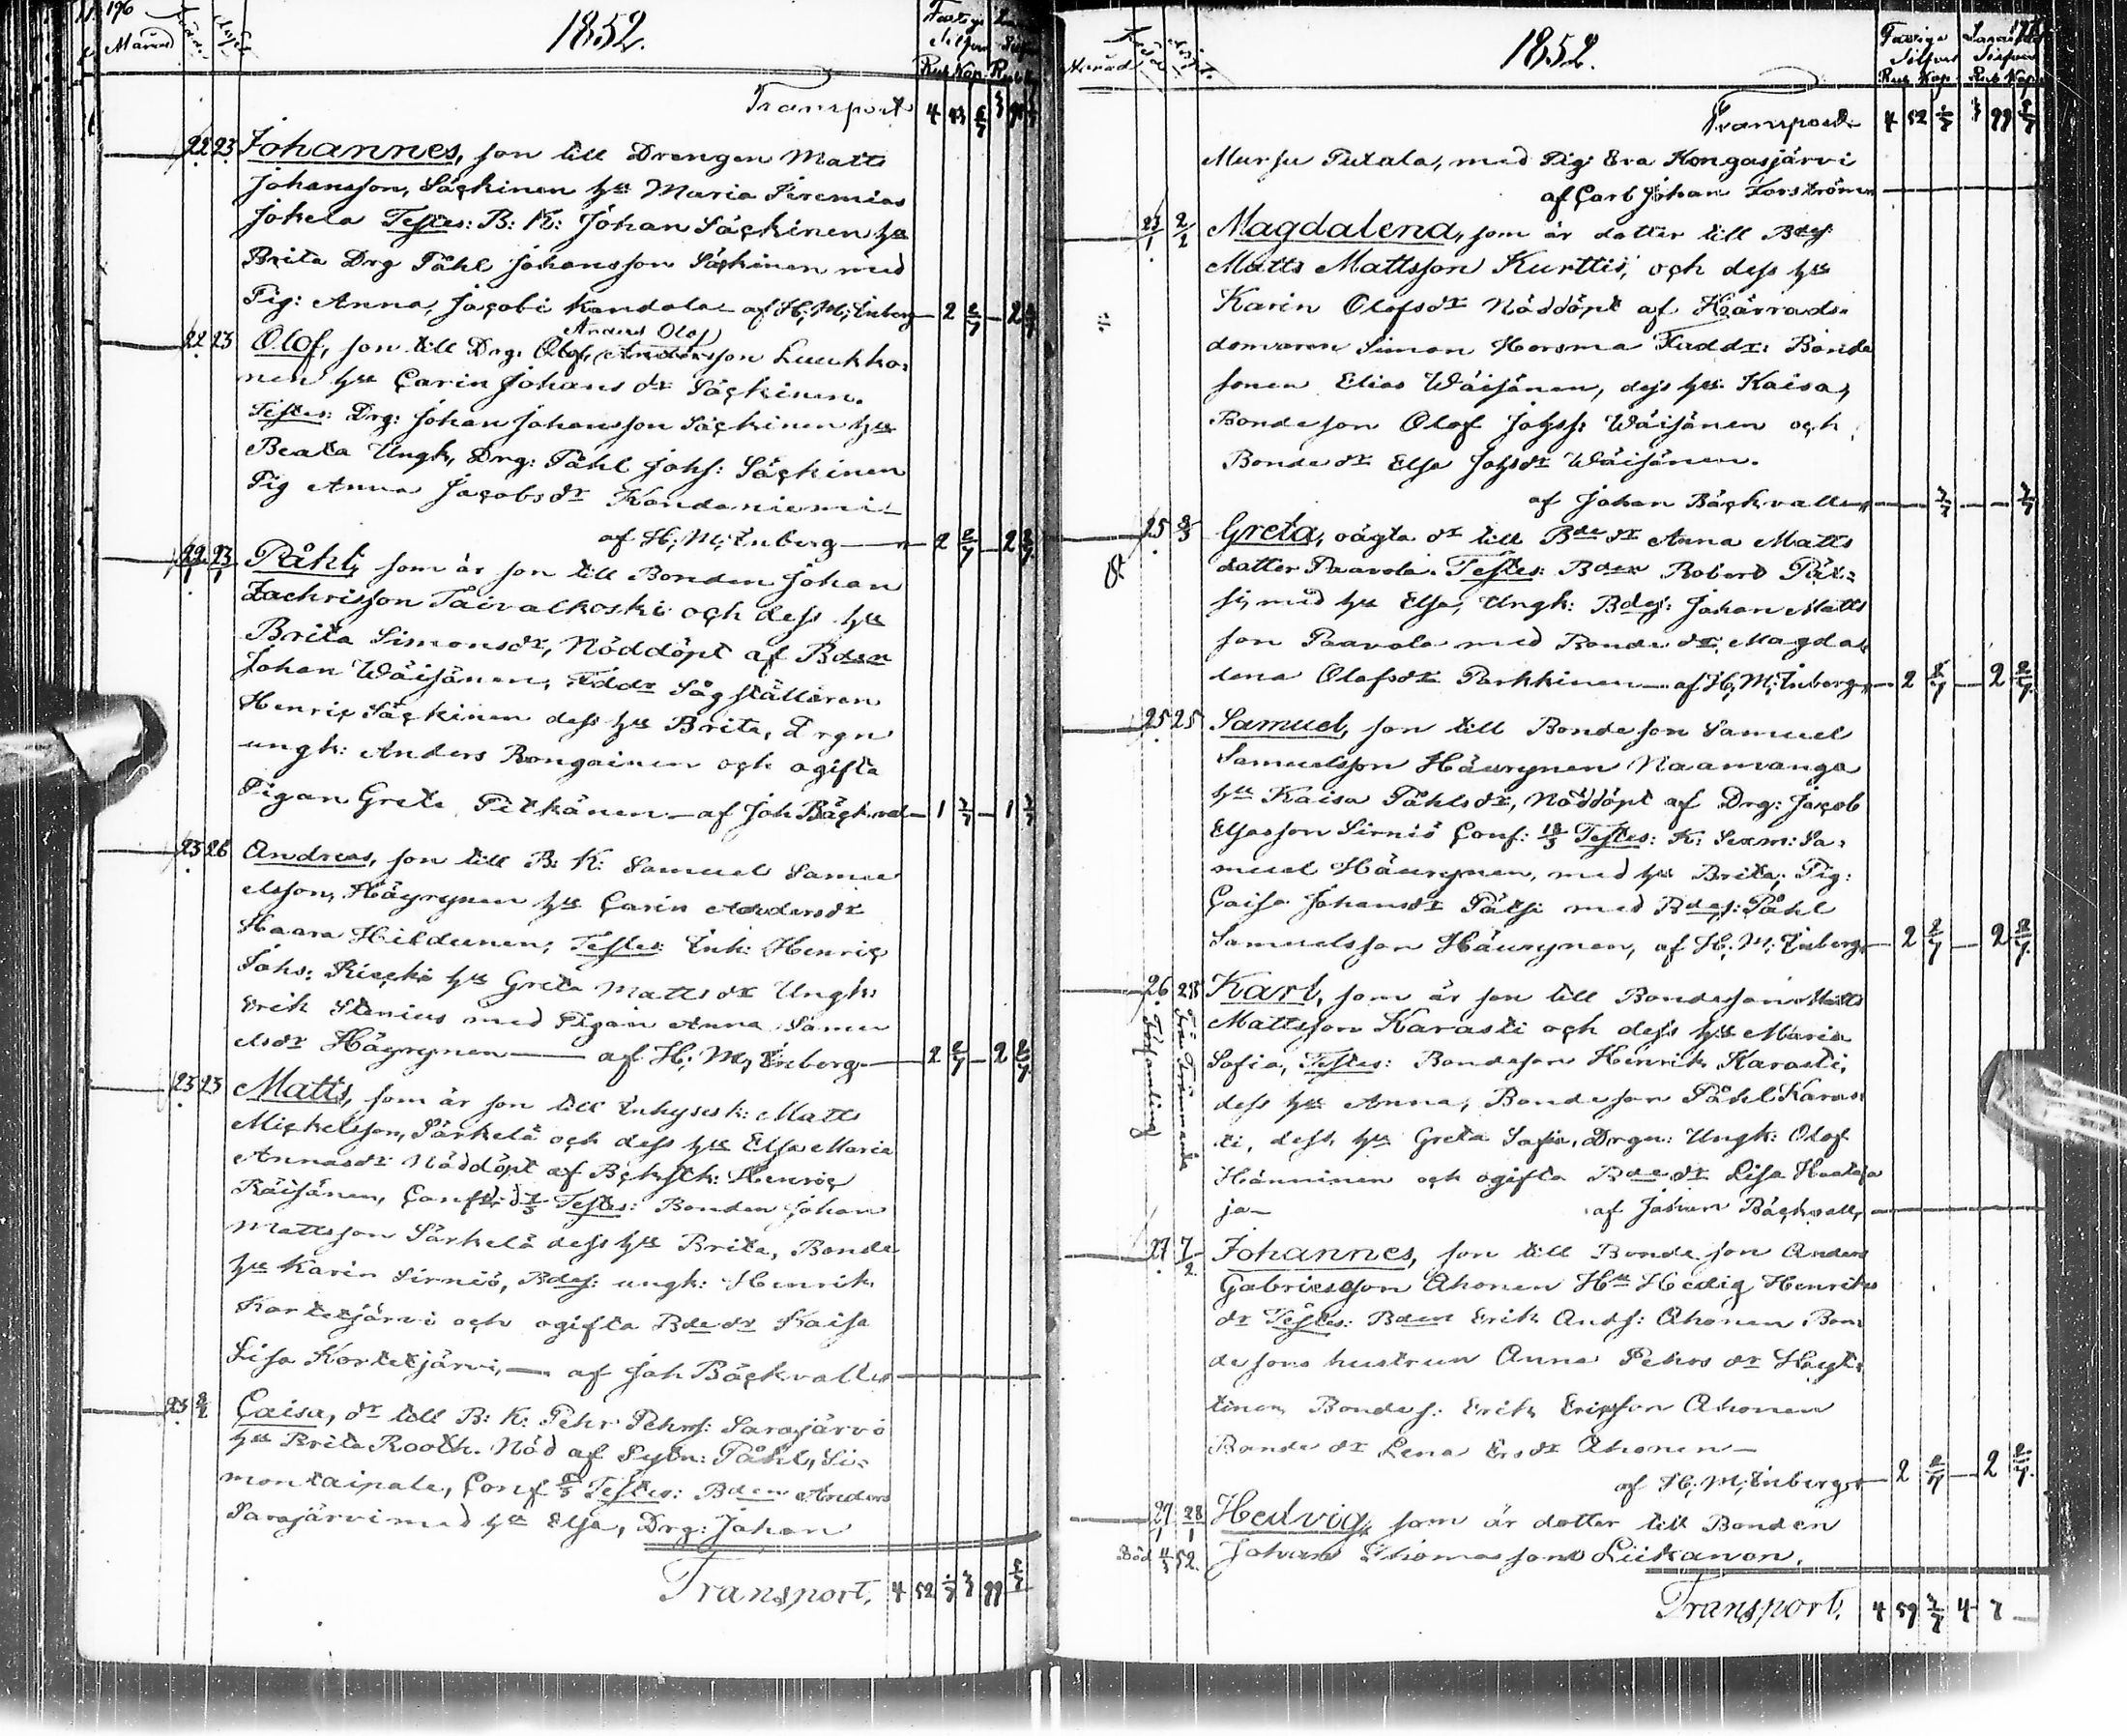 196
Månad
1852.
Fattige Silfver
Rub Kop Rub
Transport 4 43 6/7 3
22 23 Johannes, son till Drengen Matts
Johansson, Säckinen hu Maria Jeremias
Jokela Testes: B: K: Johan Säckinen hu
Brita Drg Påhl Johansson Säckinen med
Pig: Anna, Jacobi Kandola af H: M: Enberg 2 2/7 2 2/7
Anders Olof
22 23 Olof, son till Drg: Olof, Andersson Luukko-
nen hu Carin Johans dr Säckinen.
Testes: Drg: Johan Johansson Säckinen hu
Beata Ungk, Drg: Påhl Johs: Säckinen
Pig Anna Jacobs dr Kondaniemi
af H: M: Enberg 2 2/7 2 2/7
22/1 23/1 Påhl, som är son till Bonden Johan
Zachrisson Taivalkoski och dess hu
Brita Simonsdr, Nöddöpt af Bden
Johan Wäisänen, Fddr Lågställaren
Henric Säckinen dess hu Brita, Drgn
ungk: Anders Rongainen och ogifta
Pigan Greta Pitkänen af Joh Bäckval 1 3/7 1 3/7
23 26 Andreas, son till B: K: Samuel Samu
elsson, Häyrynen hu Carin Andersdr
Haara Hildunen; Testes Enk: Henric
Johs: Riecki hu Greta Matts dr Ungk:
Erik Stenius med Pigan Anna Samu
elsdr Häyrynen af H: M: Enberg 2 2/7 2 2/7
23 25 Matts, som är son till Inhysesk: Matts
Mickelsson, Särkelä och dess hu Elsa Maria
Annasdr Nöddöpt af Bckstk: Henric
Räisänen, Conf: Testes: Bonden Johan
Mattsson Särkelä dess hu Brita, Bonde
hu Karin Sirniö, Bdes: ungk: Henrik
Kortetjärvi och ogifta Bde dr Kaisa
Lisa Kortetjärvi, af Joh Bäckvall
23 8/2 Caisa, dr till B: K: Pehr Pehrs: Sarajärvi
hu Brita Rooth. Nöd af Sytn: Påhl, Si-
montaipale, Conf Testes: Bden Anders
Sarajärvi med hu Elsa, Drg: Johan
Transport, 4 52 1/7 3 99 5/7
197
Månad
1852.
Fattige Silfver
Rub Kop Rub Kop
Transport 4 52 1/7 3 99 5/7
Mursu Putala, med Pig: Eva Kongasjärvi
af Carl Johan Forström
23/1 2/2 Magdalena, som är dotter till Bdes:
Matts Mattsson Kurttis, och dess hu
Karin Olofsdr Nöddöpt af Härrads-
domaren Simon Horsma Faddr: Bonde
sonen Elias Wäisänen, dess hu Kaisa,
Bondeson Olof Johss: Wäisänen och
Bonde dr Elsa Johsdr Wäisänen.
af Johan Bäckvall 3/7 3/7
25 Greta, oägta dr till Bde dr Anna Matts
dotter Paavola. Testes: Bden Robert Pät-
si, med hu Elsa, Ungk: Bdes: Johan Matts
son Paavola med Bonde dr Magda
lena Olofsdr Parkkinen af H: M: Enberg 2 2/7 2 2/7
25 25 Samuel, son till Bondeson Samuel
Samuelsson Häurynen Naamanga
hu Kaisa Påhlsdr, Nöddöpt af Drg: Jacob
Eliasson Sirniö Conf: Testes: K: Sexm: Sa-
muel Häurynen, med hu Brita, Pig:
Caisa Johansdr Pätsi med Bdes: Påhl
Samuelsson Häurynen, af H. M: Enberg 2 2/7 2 2/7
26 28 Karl, som är son till Bondeson Matts
Mattsson Karasti och dess hu Maria
Sofia, Testes: Bondeson Henrik Karasti,
dess hu Anna, Bondeson Påhl Karas
ti, dess hu Greta Sofia, Drgn: Ungk: Olof
Hänninen och ogifta Bde dr Lisa Haataja
ja af Johan Bäckvall
Från främmande
Församling
27 7/2 Johannes, son till Bonde son Anders
Gabrielsson Ahonen Hu Hedig Henriks
dr Testes: Bden Erik Ands: Ahonen Bon
desons hustrun Anna Pehrs dr Heyt-
tinen Bondes: Erik Ericsson Ahonen
Bonde dr Lena Ersdr Ahonen
af H: M: Enberg 2 2/7 2 2/7
27/1 28/1 Hedvig, som är dotter till Bonden
Död 52. Johan Thomassons Liikanen.
Transport, 4 59 3/7 4 7